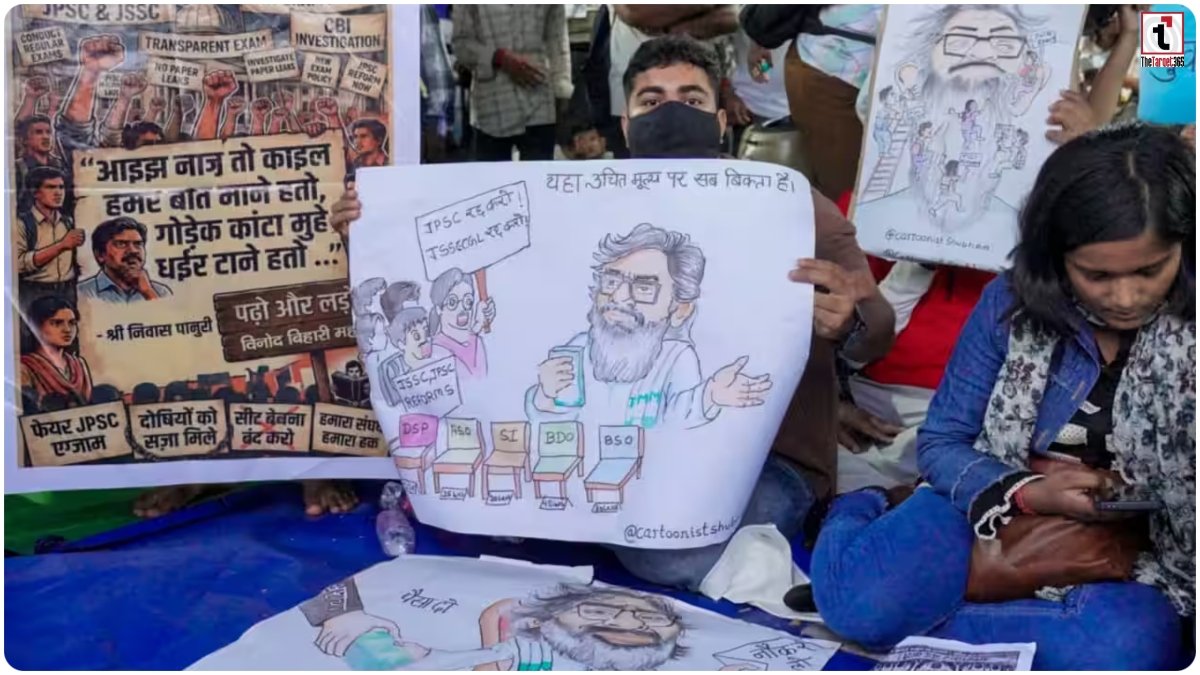 JPSC & JSSC
CONDUCT
REGULAR
EXAMS
TRANSPARENT EXAM
CBI
INVESTIGATION
NO PAPER
LEAKS
INVESTIGATE
PAPER LEAKS
NEW
EXAM
POLICY
JPSC
REFORM
NOW
“आइझ नाज़ तो काइल
हमर बात माने हतो,
गोड़ेक कांटा मुहे
धईर टाने हतो ...”
- श्री निवास पानुरी
पढ़ो और लड़ो
विनोद बिहारी
फेयर JPSC
एग्जाम
दोषियों को
सज़ा मिले
सीट बेचना
बंद करो
हमारा संघर्ष
हमारा हक
यहा उचित मूल्य पर सब बिकता है।
JPSC रद्द करो!
JSSCCGL रद्द करो!
JSSC, JPSC
REFORMS
JMM
DSP
ASO
SI
BDO
BSO
@cartoonistshub
@cartoonistshubham
पैसा दो
TheTarget365